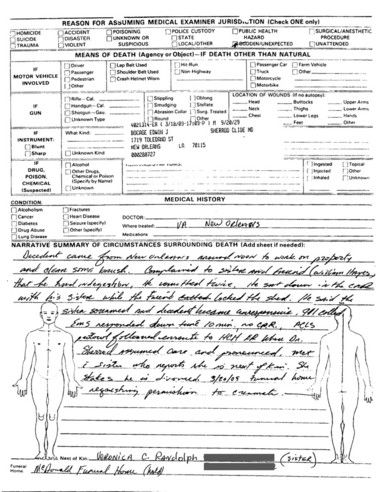 REASON FOR ASSUMING MEDICAL EXAMINER JURISDICTION (Check ONE only)
HOMICIDE ACCIDENT POISONING POLICE CUSTODY PUBLIC HEALTH SURGICAL/ANESTHETIC
SUICIDE DISASTER UNKNOWN OR STATE HAZARD PROCEDURE
TRAUMA VIOLENT SUSPICIOUS LOCAL/OTHER SUDDEN/UNEXPECTED UNATTENDED
MEANS OF DEATH (Agency or Object)—IF DEATH OTHER THAN NATURAL
IF MOTOR VEHICLE INVOLVED
Driver Lap Belt Used Hit Run Passenger Car Farm Vehicle
Passenger Shoulder Belt Used Non-Highway Truck Other
Pedestrian Crash Helmet Worn Motorcycle
Other Motorbike
IF GUN
Rifle - Cal. Stippling Oblong LOCATION OF WOUNDS (If no autopsy)
Handgun - Cal. Smudging Stellate Head Buttocks Upper Arms
Shotgun - Ga. Abrasion Collar Surg. Treated Neck Thighs Lower Arms
Unknown Type Round Other Chest Lower Legs Hands
Feet Other
IF INSTRUMENT:
Blunt
Sharp
What Kind:
Unknown Kind
BOCAGE EDWIN J SHERROD CLIDE MD
1719 TOLEDANO ST
NEW ORLEANS LA 70115
000208727
IF DRUG, POISON, CHEMICAL (Suspected)
Alcohol
Other Drugs, Chemical or Poison (Specify by Name)
Unknown
Ingested Topical
Injected Other
Inhaled Unknown
CONDITION MEDICAL HISTORY
Alcoholism Fractures
Cancer Heart Disease DOCTOR:
Diabetes Seizure (specify) Where treated: VA New Orleans
Drug Abuse Other (specify)
Lung Disease Medications
NARRATIVE SUMMARY OF CIRCUMSTANCES SURROUNDING DEATH (Add sheet if needed):
Decedent came from New Orleans around noon to work on property
and clear some brush. Complained to sister and friend (William Hayes)
that he had indigestion, he vomitted twice, He sat down in the car
with his sister while the friend locked the shed. He said the
sister screamed and decedent became unresponsive. 911 called
Ems responded down time 10 min, no CPR, ACLS
protocol followed enroute to HCH ER where Dr.
Sherrod assumed care and pronounced. met
c sister who reports she is next of kin. She
states he is divorced. 3/20/05 Funeral home
requesting permission to cremate.
Next of Kin: VERONICA C. RANdolph (sister)
Funeral Home: McDonald Funeral Home (hold)